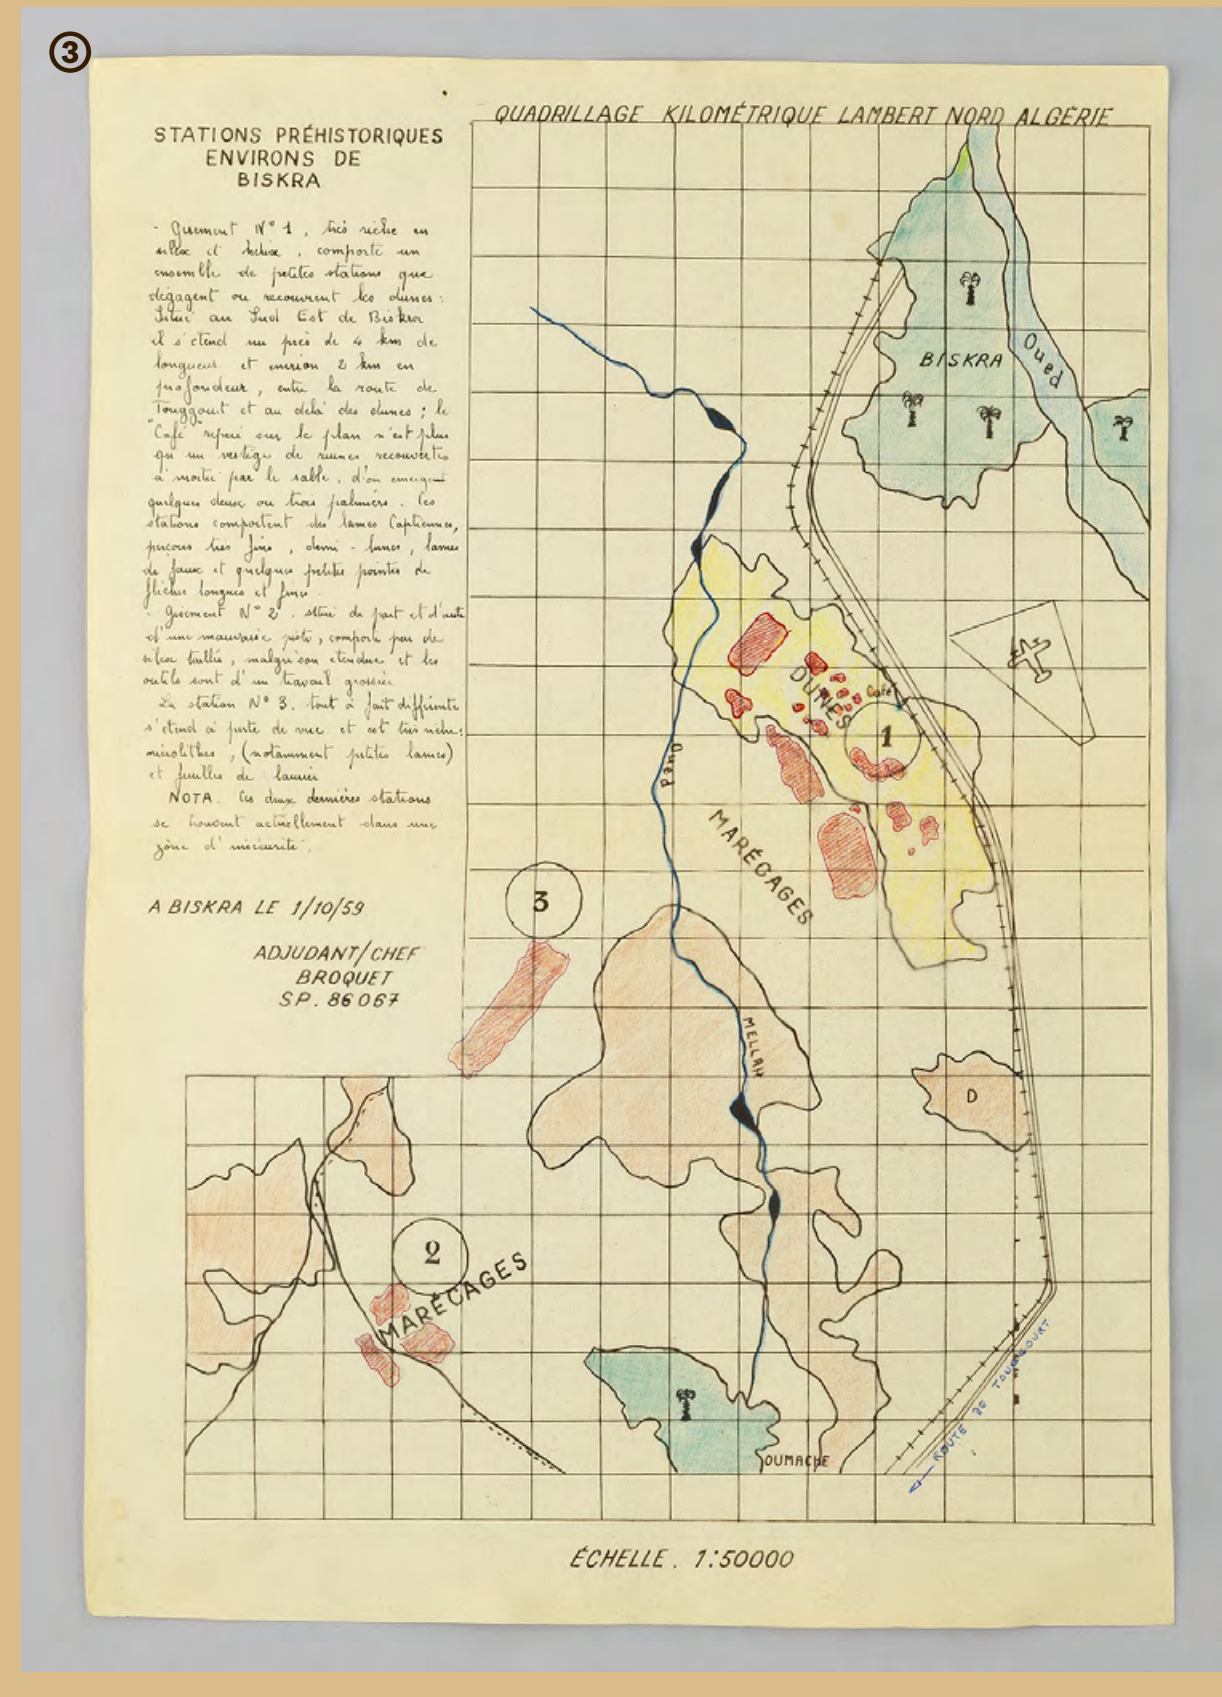 3
QUADRILLAGE KILOMÉTRIQUE LAMBERT NORD ALGERIE
STATIONS PRÉHISTORIQUES
ENVIRONS DE
BISKRA
- Gisement N° 1, très riche en
silex et hélix, comporte un
ensemble de petites stations que
dégagent ou recouvrent les dunes:
Situé au Sud Est de Biskra
il s'étend sur près de 4 km de
longueur et environ 2 km en
profondeur, entre la route de
Touggourt et au delà des dunes; le
"Café" repéré sur le plan n'est plus
qu'un vestige de ruines recouvertes
à moitié par le sable, d'où émergent
quelques deux ou trois palmiers. Ces
stations comportent des lames Capsiennes,
perçoirs très fins, demi-lunes, lames
de faux et quelques petites pointes de
flèches longues et fines.
- Gisement N° 2. situé de part et d'autre
d'une mauvaise piste, comporte peu de
silex taillés, malgré son étendue et les
outils sont d'un travail grossier.
La station N° 3. tout à fait différente
s'étend à perte de vue et est très riche:
microlithes, (notamment petites lames)
et feuilles de laurier
NOTA. Ces deux dernières stations
se trouvent actuellement dans une
zône d'insécurité.
A BISKRA LE 1/10/59
ADJUDANT/CHEF
BROQUET
SP. 86067
BISKRA
Oued
DUNES
Café
1
Oued
MARÉCAGES
3
MELLAH
D
2
MARÉCAGES
ROUTE DE TOUGGOURT
OUMACHE
ÉCHELLE. 1:50000